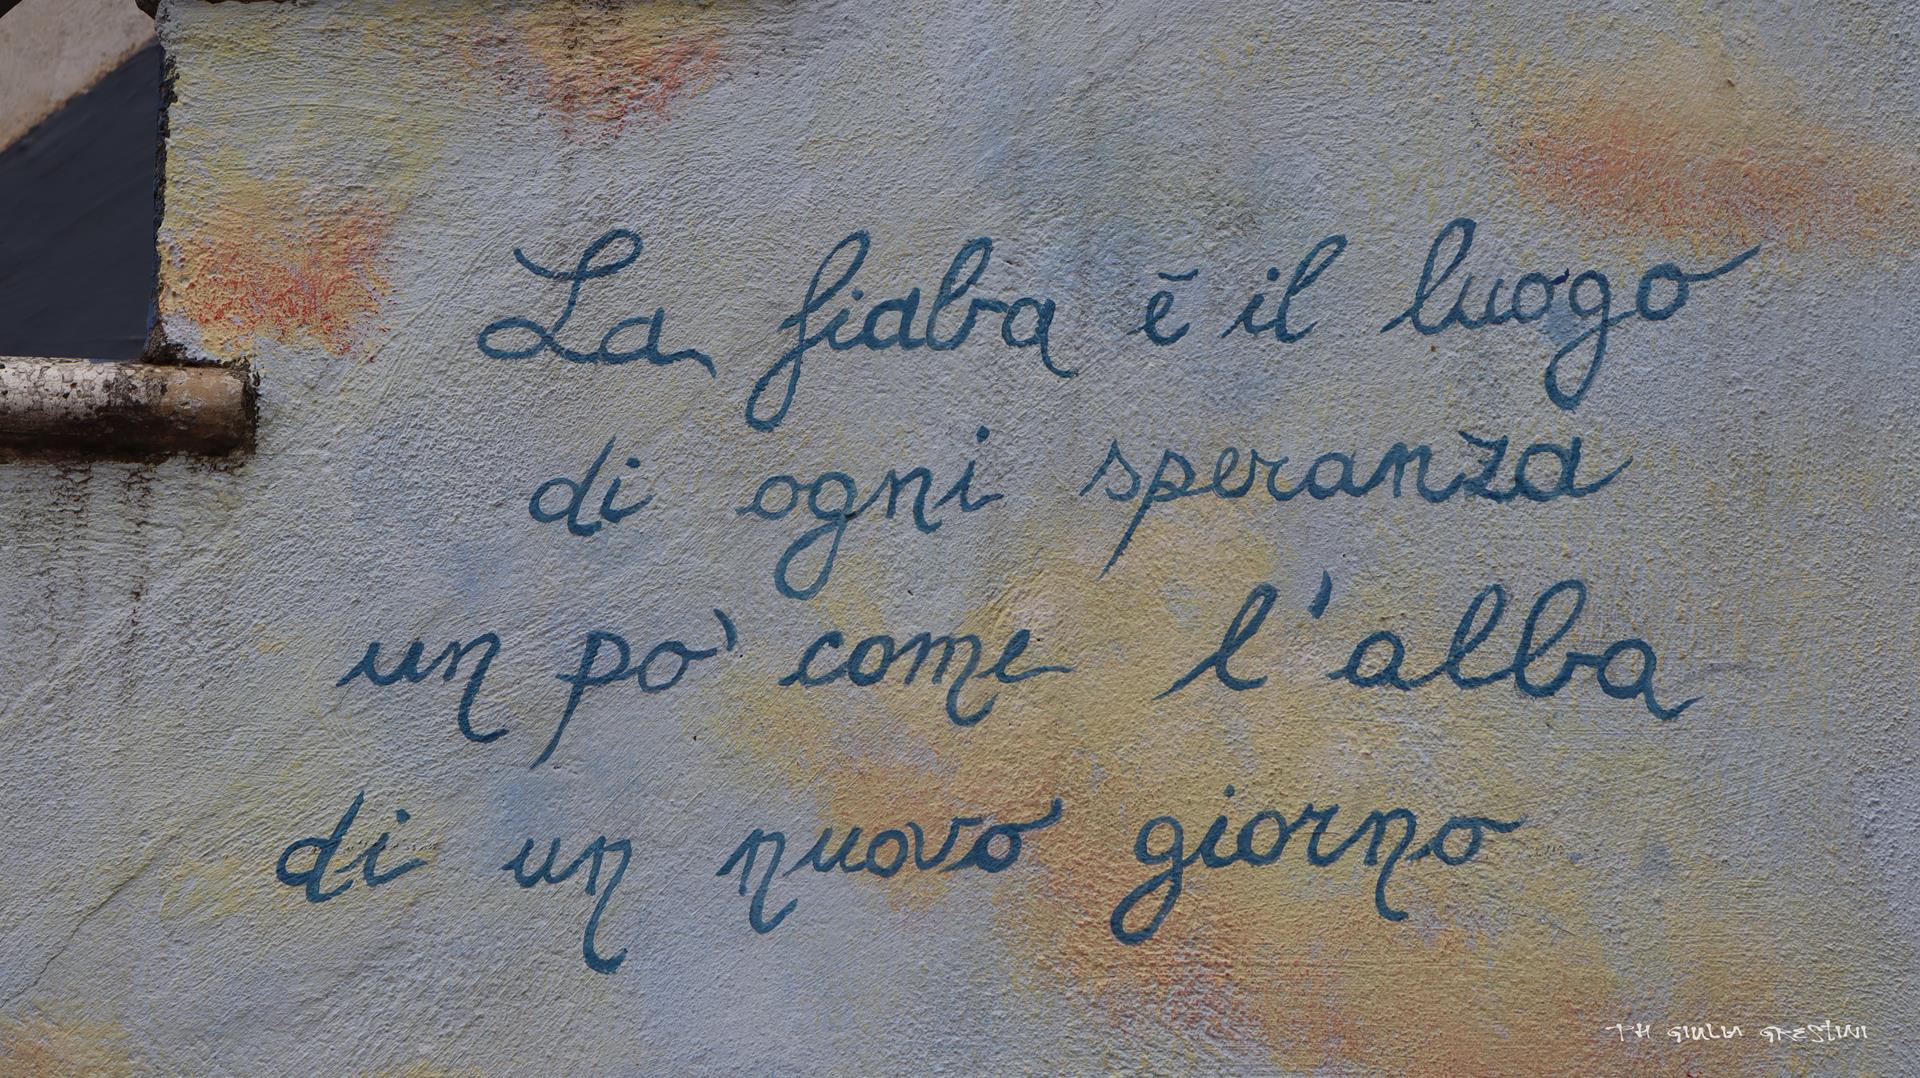 La fiaba ē il luogo
di ogni speranza
un po' come l'alba
di un nuovo giorno
PH GIULIA GRESTINI